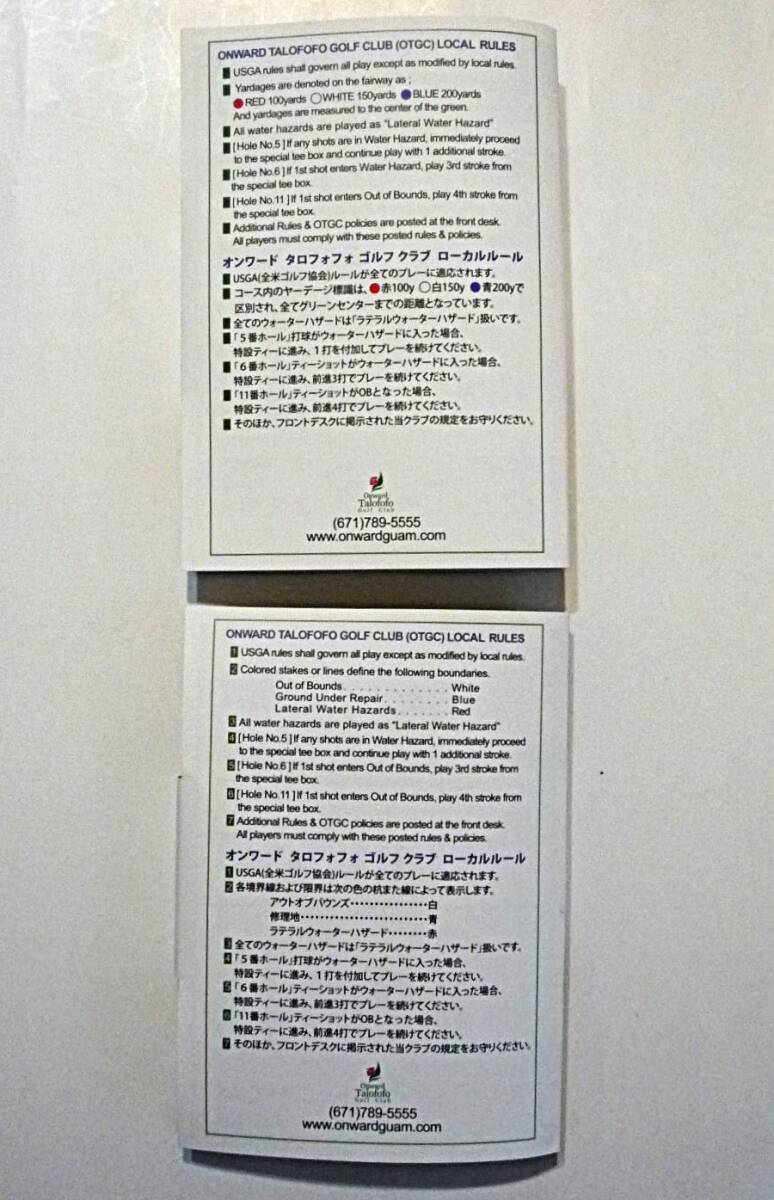 ONWARD TALOFOFO GOLF CLUB (OTGC) LOCAL RULES
USGA rules shall govern all play except as modified by local rules.
Yardages are denoted on the fairway as ;
RED 100yards WHITE 150yards BLUE 200yards
And yardages are measured to the center of the green.
All water hazards are played as "Lateral Water Hazard"
[Hole No.5] If any shots are in Water Hazard, immediately proceed
to the special tee box and continue play with 1 additional stroke.
[Hole No.6] If 1st shot enters Water Hazard, play 3rd stroke from
the special tee box.
[Hole No.11] If 1st shot enters Out of Bounds, play 4th stroke from
the special tee box.
Additional Rules & OTGC policies are posted at the front desk.
All players must comply with these posted rules & policies.
オンワード タロフォフォ ゴルフ クラブ ローカルルール
USGA(全米ゴルフ協会)ルールが全てのプレーに適応されます。
コース内のヤーデージ標識は、赤100y 白150y 青200yで
区別され、全てグリーンセンターまでの距離となっています。
全てのウォーターハザードは「ラテラルウォーターハザード」扱いです。
「5番ホール」打球がウォーターハザードに入った場合、
特設ティーに進み、1打を付加してプレーを続けてください。
「6番ホール」ティーショットがウォーターハザードに入った場合、
特設ティーに進み、前進3打でプレーを続けてください。
「11番ホール」ティーショットがOBとなった場合、
特設ティーに進み、前進4打でプレーを続けてください。
そのほか、フロントデスクに掲示された当クラブの規定をお守りください。
Onward
Talofofo
Golf Club
(671)789-5555
www.onwardguam.com
ONWARD TALOFOFO GOLF CLUB (OTGC) LOCAL RULES
1 USGA rules shall govern all play except as modified by local rules.
2 Colored stakes or lines define the following boundaries.
Out of Bounds. . . . . . . . . . . . . White
Ground Under Repair. . . . . . . . Blue
Lateral Water Hazards. . . . . . . Red
3 All water hazards are played as "Lateral Water Hazard"
4 [Hole No.5] If any shots are in Water Hazard, immediately proceed
to the special tee box and continue play with 1 additional stroke.
5 [Hole No.6] If 1st shot enters Out of Bounds, play 3rd stroke from
the special tee box.
6 [Hole No.11] If 1st shot enters Out of Bounds, play 4th stroke from
the special tee box.
7 Additional Rules & OTGC policies are posted at the front desk.
All players must comply with these posted rules & policies.
オンワード タロフォフォ ゴルフ クラブ ローカルルール
1 USGA(全米ゴルフ協会)ルールが全てのプレーに適応されます。
2 各境界線および限界は次の色の杭また線によって表示します。
アウトオブバウンズ・・・・・・・・・・・・・・・・白
修理地・・・・・・・・・・・・・・・・・・・・・・・・・・青
ラテラルウォーターハザード・・・・・・・・赤
3 全てのウォーターハザードは「ラテラルウォーターハザード」扱いです。
4 「5番ホール」打球がウォーターハザードに入った場合、
特設ティーに進み、1打を付加してプレーを続けてください。
5 「6番ホール」ティーショットがウォーターハザードに入った場合、
特設ティーに進み、前進3打でプレーを続けてください。
6 「11番ホール」ティーショットがOBとなった場合、
特設ティーに進み、前進4打でプレーを続けてください。
7 そのほか、フロントデスクに掲示された当クラブの規定をお守りください。
Onward
Talofofo
Golf Club
(671)789-5555
www.onwardguam.com